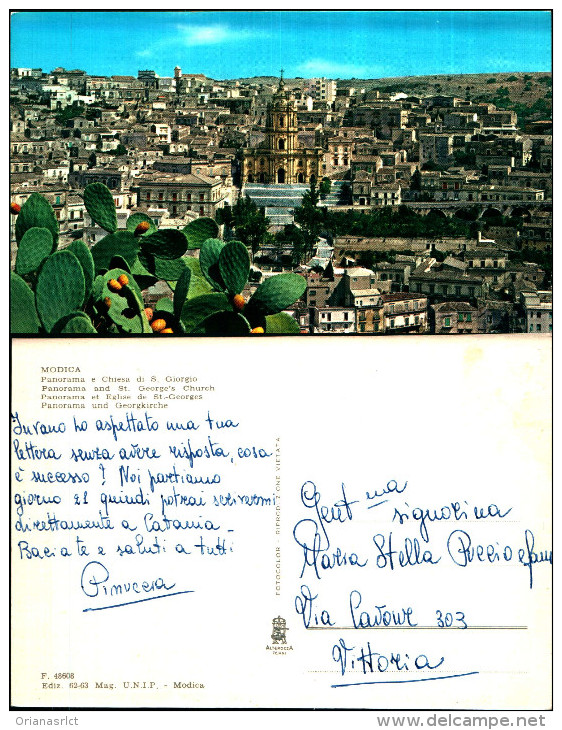 MODICA
Panorama e Chiesa di S. Giorgio
Panorama and St. George's Church
Panorama et Eglise de St.-Georges
Panorama und Georgkirche
Invano ho aspettato una tua
lettera senza avere risposta, cosa
è successo? Noi partiamo
giorno 21 quindi potrai scrivermi
direttamente a Catania -
Baciate e saluti a tutti
Pinuccia
FOTOCOLOR - RIPRODUZIONE VIETATA
ALTEROCCA
TERNI
Gent ma
signorina
Maria Stella Puccio e fam
Via Cavour 303
Vittoria
F. 48608
Ediz. 62-63 Mag. U.N.I.P. - Modica
Orianasrlct
www.delcampe.net